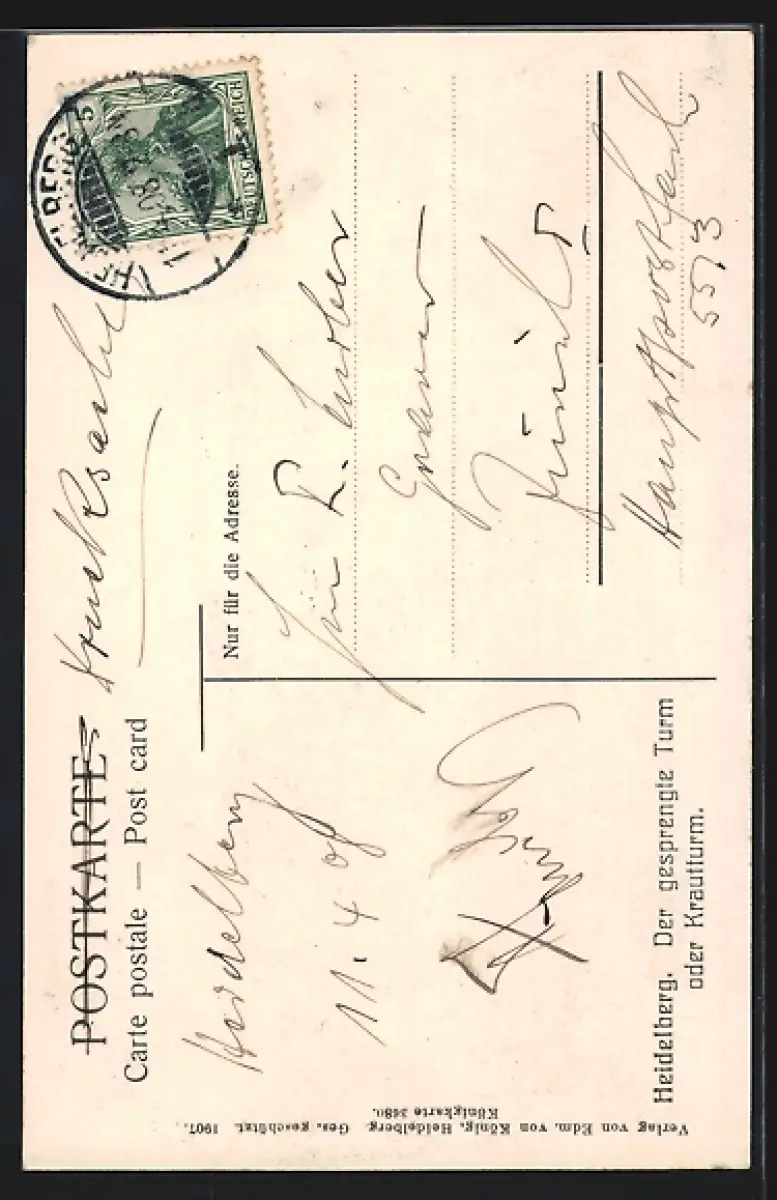 POSTKARTE
Drucksache
Carte postale — Post card
Nur für die Adresse.
Heidelberg
11. 4 08
Für
Zürich
Hauptpostfach
5573
Heidelberg. Der gesprengte Turm
oder Krautturm.
Verlag von Edm. von König, Heidelberg. Ges. geschützt. 1907.
Königkarte 3480.
5
DEUTSCHES REICH
HEIDELBERG